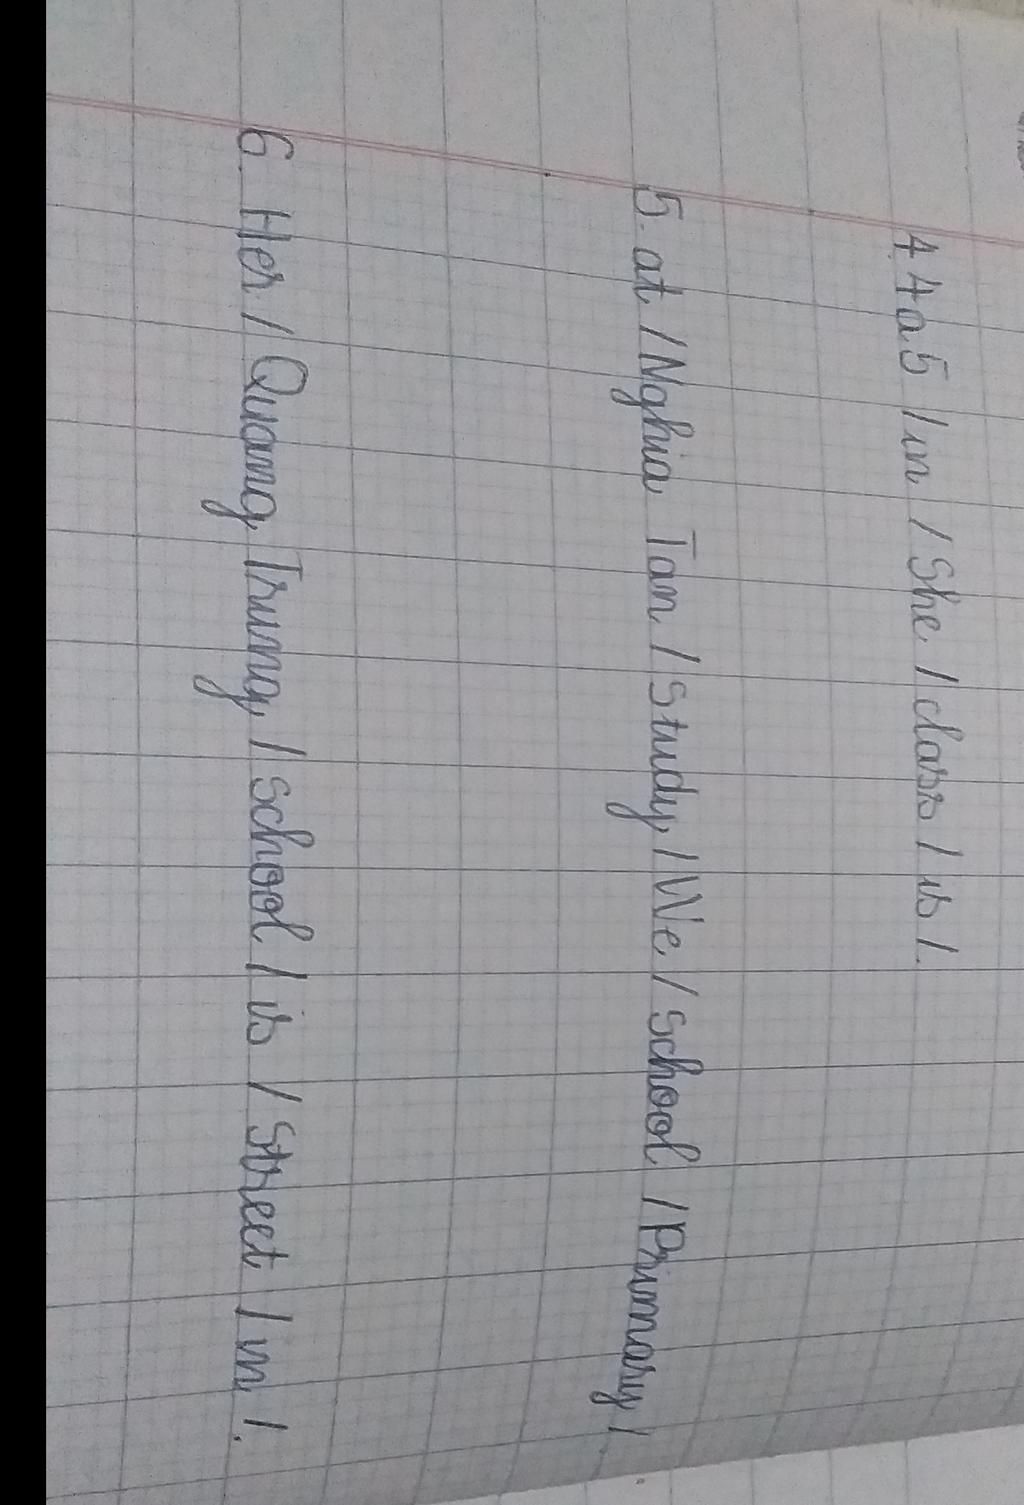 4. 4a5 / in / She / class / is /.
5. at / Nghia Tan / study / We / school / Primary /.
6. Her / Quang Trung / school / is / street / in /.